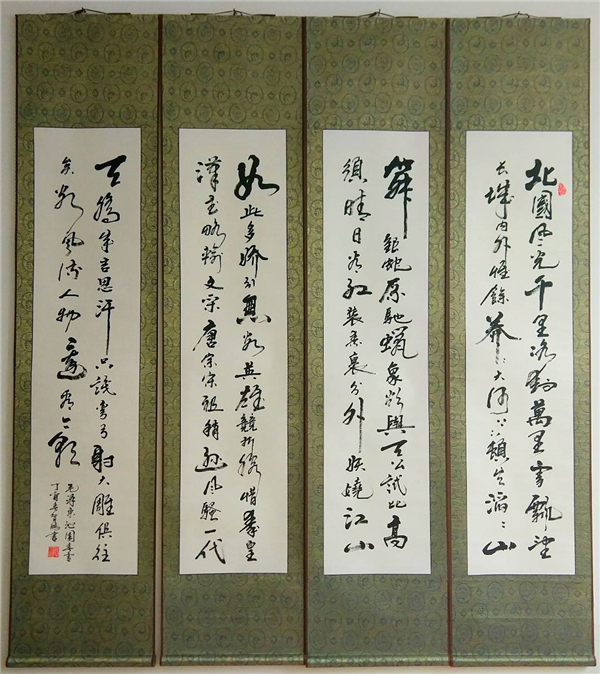 北國风光千里冰封萬里雪飄望
长城内外惟餘莽々大河上下顿失滔々山
舞銀蛇原馳蠟象欲與天公試比高
須晴日看红裝素裹分外妖嬈江山
如此多娇引無数英雄競折腰惜秦皇
漢武略输文采唐宗宋祖稍逊风騷一代
天骄成吉思汗只識弯弓射大雕俱往
矣数風流人物還看今朝
毛澤東沁園春雪
丁酉春書